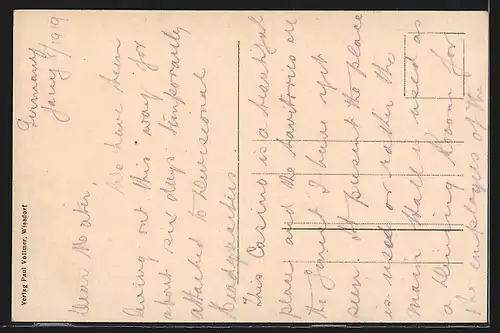 Germany
Jany 8/1919
Dear
We have been
living out this way for
about six days temporarily
attached to Devisional
Headquarters.
This Casino is a beautiful
place and the lavitories are
the finest I have yet
seen. At present the place
is used or rather the
main Hall is used as
a Dining Room for
the employees of the
Verlag Paul Vollmer, Wiesdorf